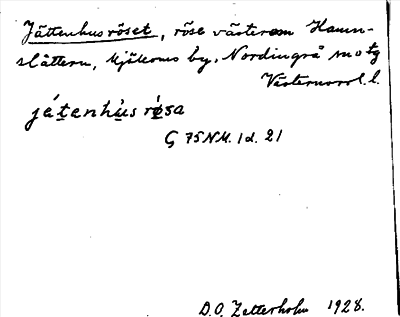 Jättenhusröset, röse väster om Hamn-
slåttern, Mjälloms by, Nordingrå sn o tg
Västernorrl. l.
játenhùs rösa
G 75 NM. 1d. 21
D.O. Zetterholm 1928.